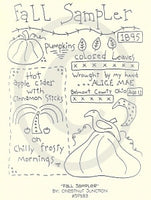 Fall Sampler
1895
Pumpkins
colored Leaves
Hot
Apple cider
with
Cinnamon Sticks
on
Chilly frosty
Mornings
Wrought by my hand
...ALICE MAE
Belmont County Ohio
"FALL SAMPLER"
BY: CHESTNUT JUNCTION